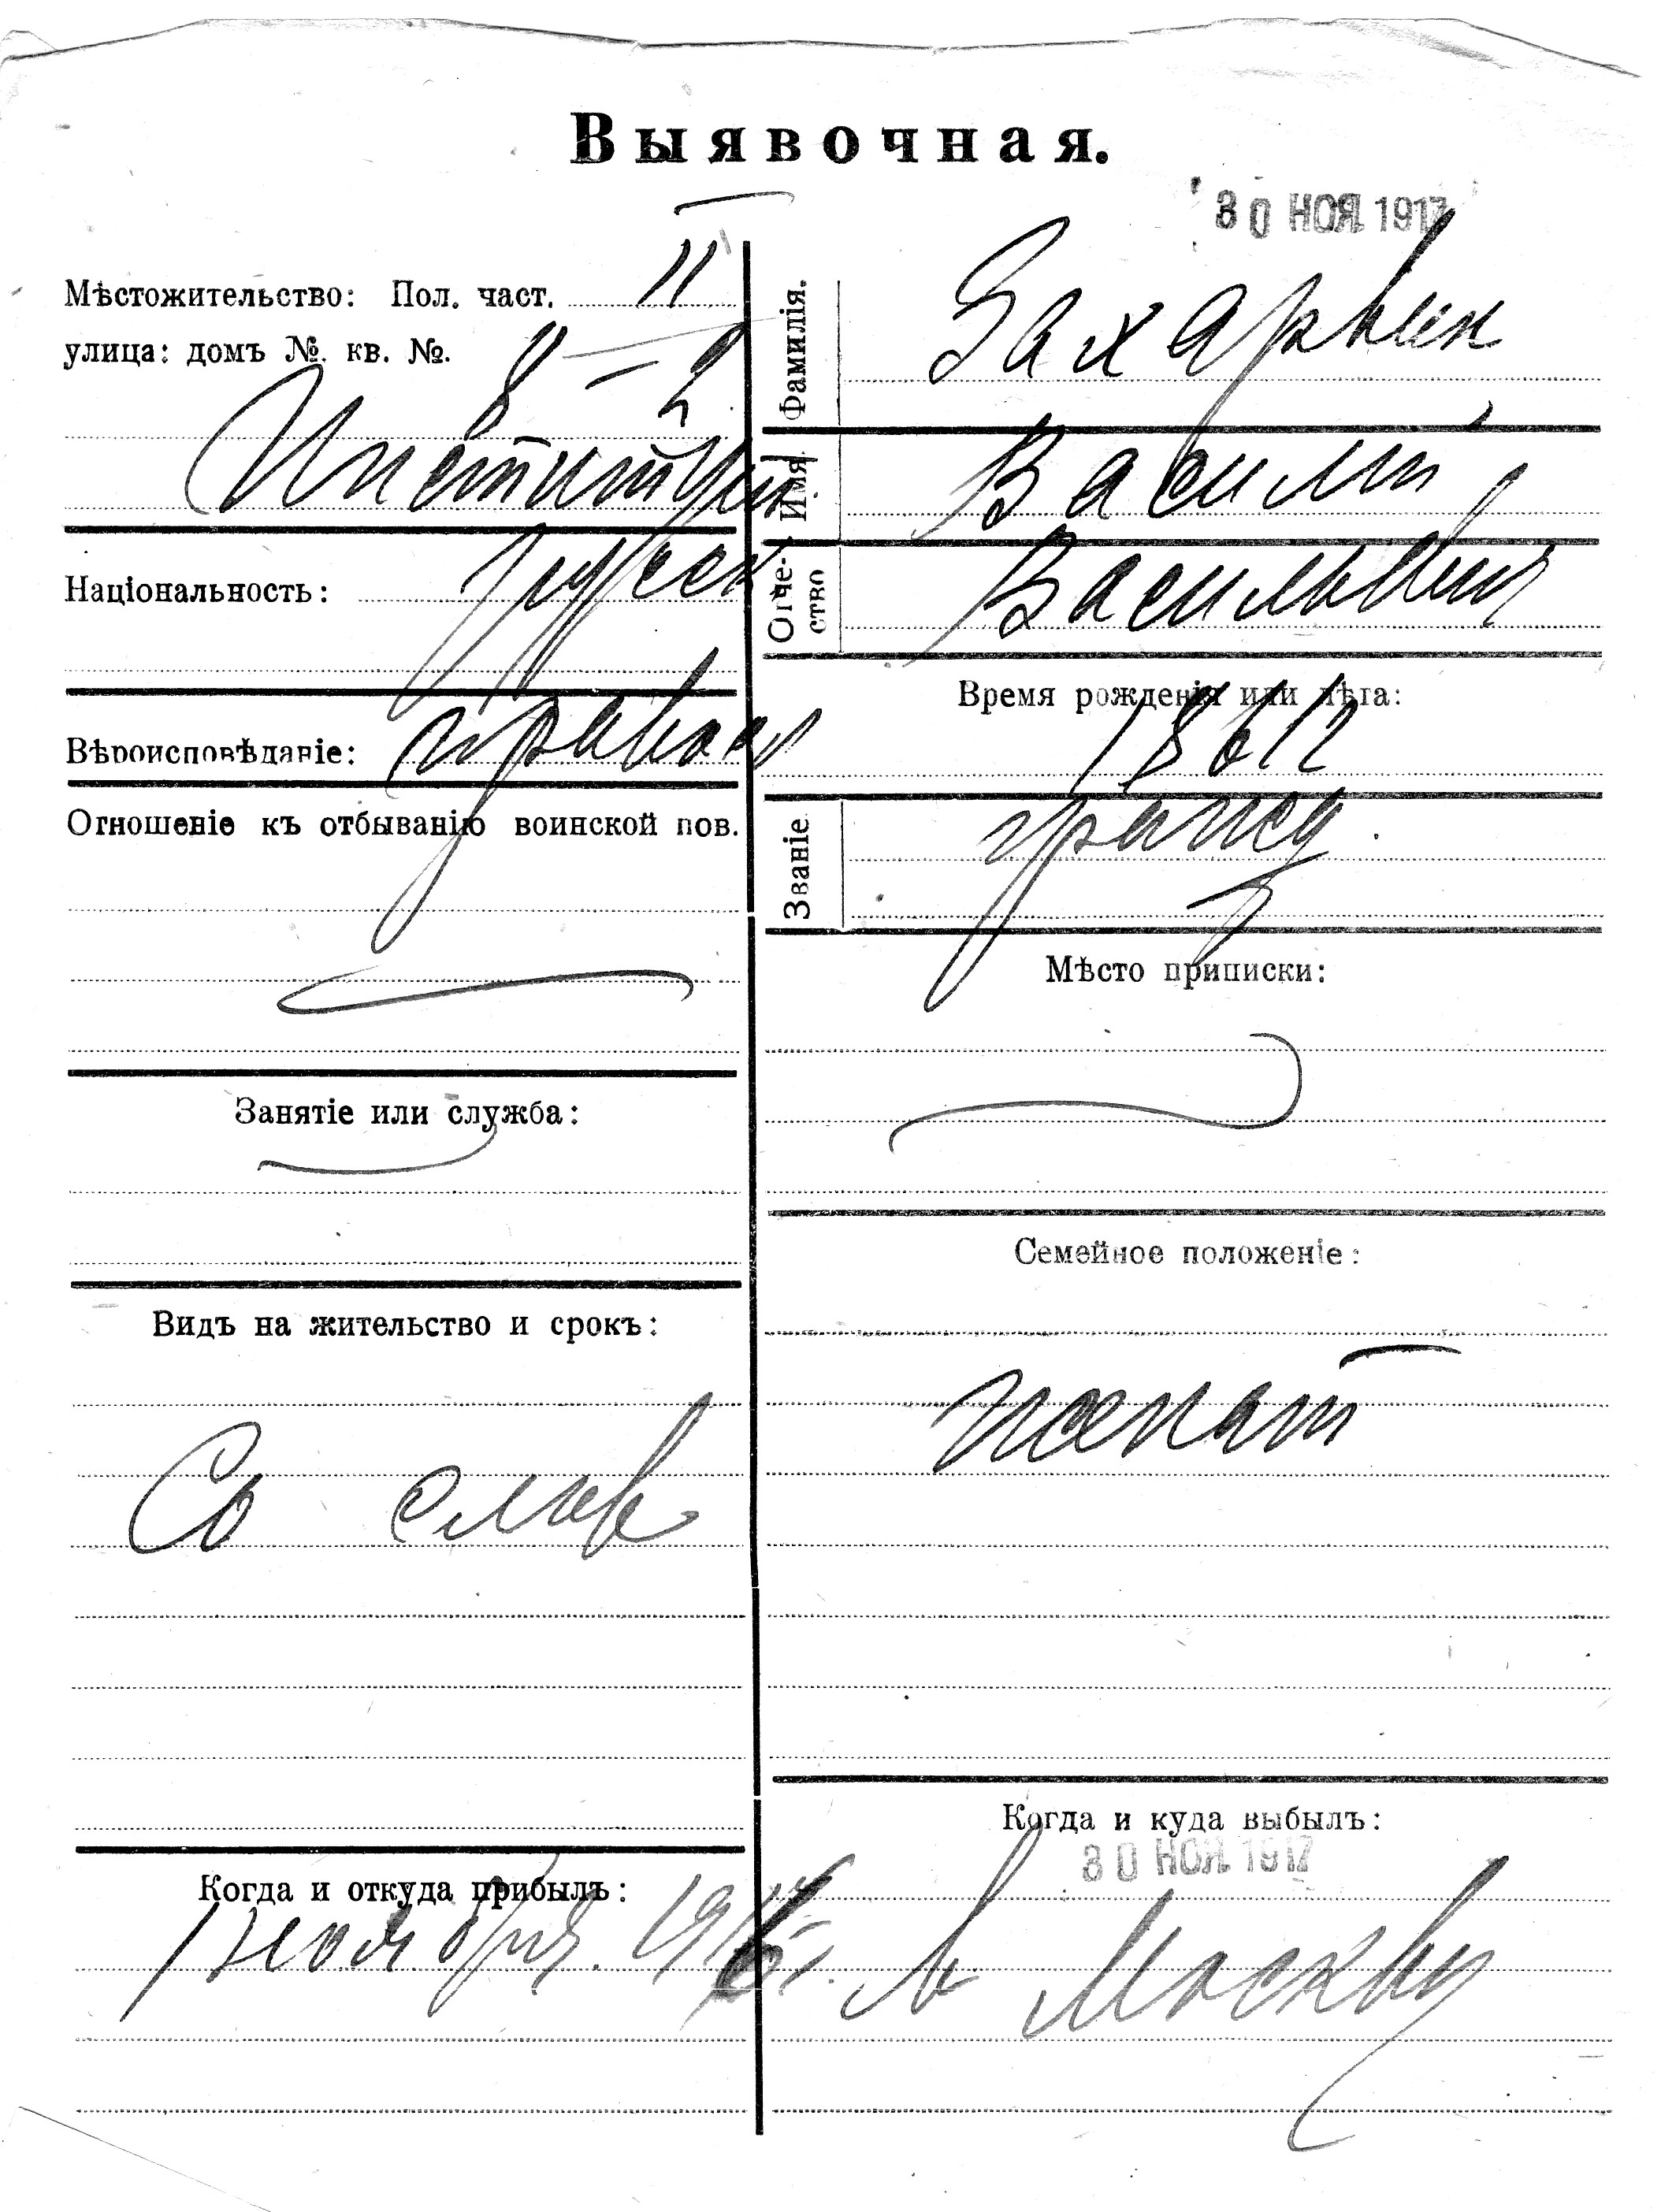 Выявочная.
30 НОЯ. 1917
Мѣстожительство: Пол. част. II
улица: домъ №. кв. №.
8 — 2
Институт
Національность:
русск
Вѣроисповѣданіе: правосл
Отношеніе къ отбыванію воинской пов.
Занятіе или служба:
Видъ на жительство и срокъ:
Со слов
Когда и откуда прибылъ:
ноября
Фамилія.
Захарьин
Имя
Василий
Отче-
ство
Васильевич
Время рожденія или лѣта:
Званіе
гражд.
Мѣсто приписки:
Семейное положеніе:
женат
Когда и куда выбылъ:
30 НОЯ. 1917
в Москву